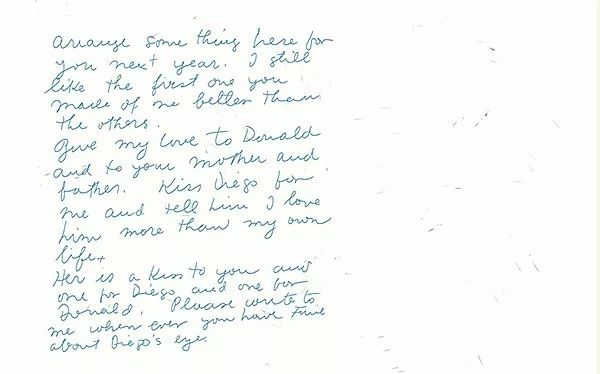 arrange some thing here for
you next year. I still
like the first one you
made of me better than
the others.
Give my love to Donald
and to your mother and
father. Kiss Diego for
me and tell him I love
him more than my own
life.
Her is a kiss to you and
one for Diego and one for
Donald. Please write to
me when ever you have time
about Diego's eye.